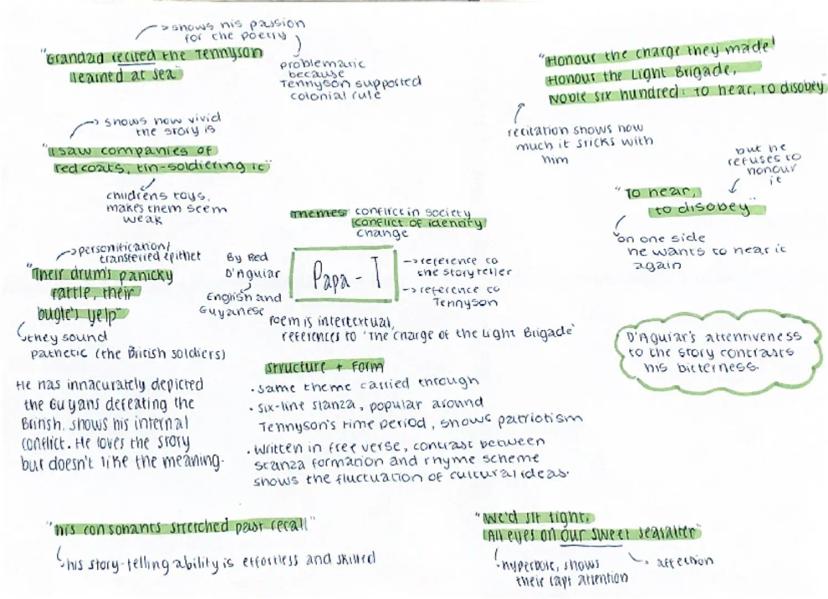 shows his passion
for the poetry
"Grandad recited the Tennyson
learned at sea"
problematic
because
Tennyson supported
colonial rule
"Honour the charge they made!
Honour the Light Brigade,
Noble six hundred: to hear, to disobey"
recitation shows how
much it sticks with
him
shows how vivid
the story is
"I saw companies of
redcoats, tin-soldiering it"
childrens toys,
makes them seem
weak
but he
refuses to
honour
it
"To hear,
to disobey"
on one side
he wants to hear it
again
personification/
transferred epithet
"Their drum's panicky
rattle, their
bugle's yelp"
they sound
pathetic (the British soldiers)
THEMES: conflict in society
conflict of identity
change
By Fred
D'Aguiar
English and
Guyanese
Papa - T
reference to
the storyteller
reference to
Tennyson
Poem is intertextual,
references to 'The Charge of the Light Brigade'
D'Aguiar's attentiveness
to the story contrasts
his bitterness.
He has innacurately depicted
the Guyans defeating the
British. shows his internal
conflict. He loves the story
but doesn't like the meaning.
structure + Form
· same theme carried through
· six-line stanza, popular around
Tennyson's time period, shows patriotism
· written in free verse, contrast between
stanza formation and rhyme scheme
shows the fluctuation of cultural ideas.
"his consonants stretched past recall"
his story-telling ability is effortless and skilled
"We'd sit tight,
All eyes on our sweet seasalter"
hyperbole, shows
their rapt attention
affection